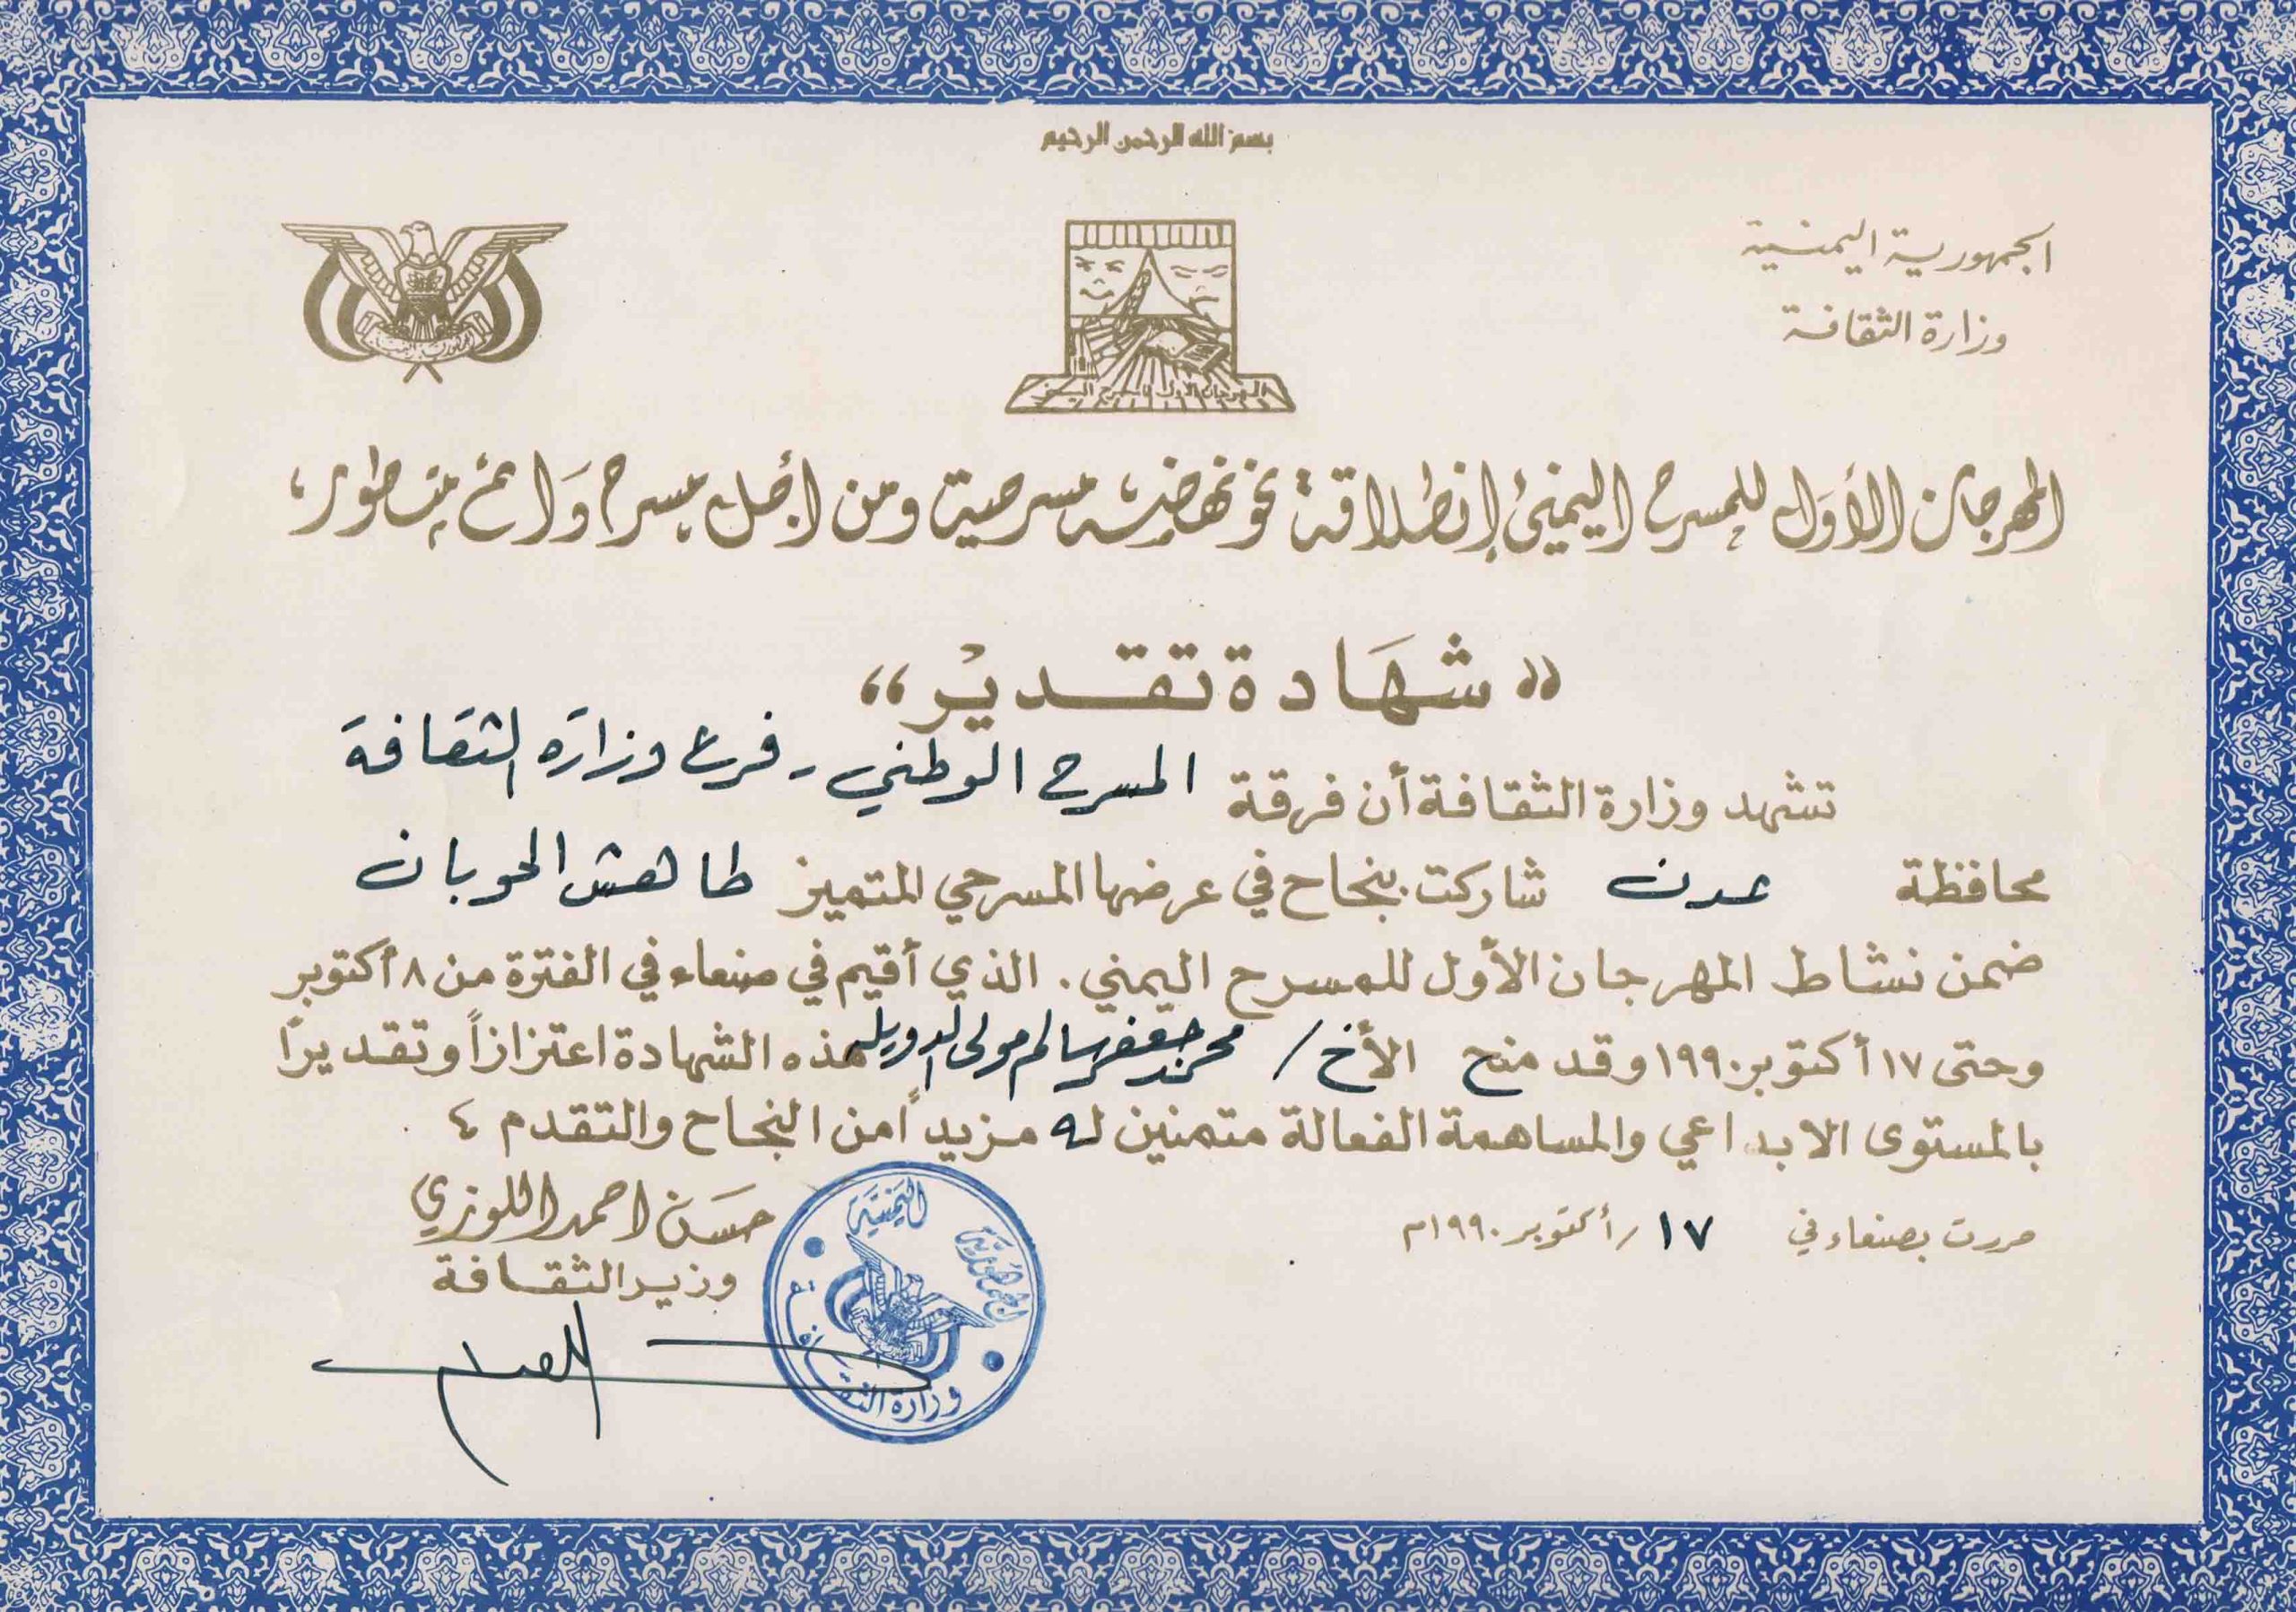 بسم الله الرحمن الرحيم
الجمهورية اليمنية
وزارة الثقافة
المهرجان الأول للمسرح اليمني
المهرجان الأوَل للمسرح اليمني إنطلاقة نحو نهضة مسرحية ومن أجل مسرح وَائم متطور،
«شهَادة تقديْر»
تشهد وزارة الثقافة أن فرقة المسرح الوطني - فرع وزارة الثقافة
محافظة عدن شاركت بنجاح في عرضها المسرحي المتميز طاهش الحوبان
ضمن نشاط المهرجان الأول للمسرح اليمني. الذي أقيم في صنعاء في الفترة من ٨ أكتوبر
وحتى ١٧ أكتوبر ١٩٩٠ وقد منح الأخ / محمد جعفر سالم مولى الدويله هذه الشهادة اعتزازاً وتقديرًا
بالمستوى الابداعي والمساهمة الفعالة متمنين له مزيداً من النجاح والتقدم ،
حررت بصنعاء في ١٧ / أكتوبر ١٩٩٠م
حسَن احمد اللوزي
وزير الثقافة
الجمهورية اليمنية
وزارة الثقافة